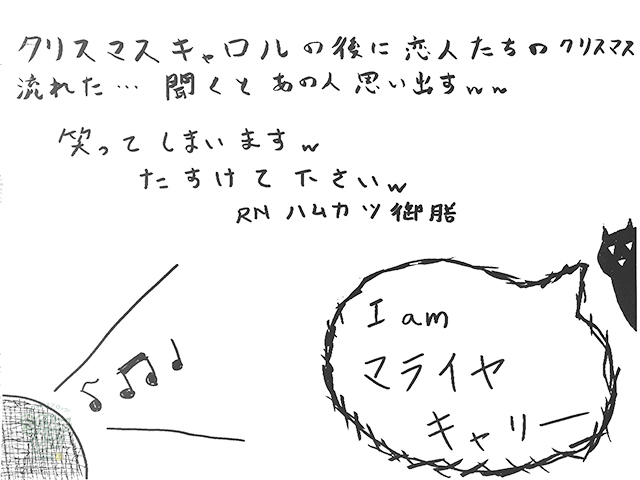 クリスマスキャロルの後に恋人たちのクリスマス
流れた… 聞くとあの人思い出すｗｗ
笑ってしまいますｗ
たすけて下さいｗ
RN ハムカツ御膳
I am
マライヤ
キャリー